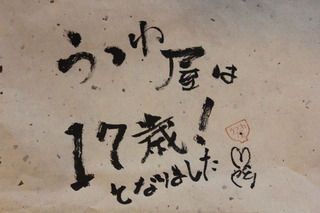 うつわ屋は
17歳!
となりました